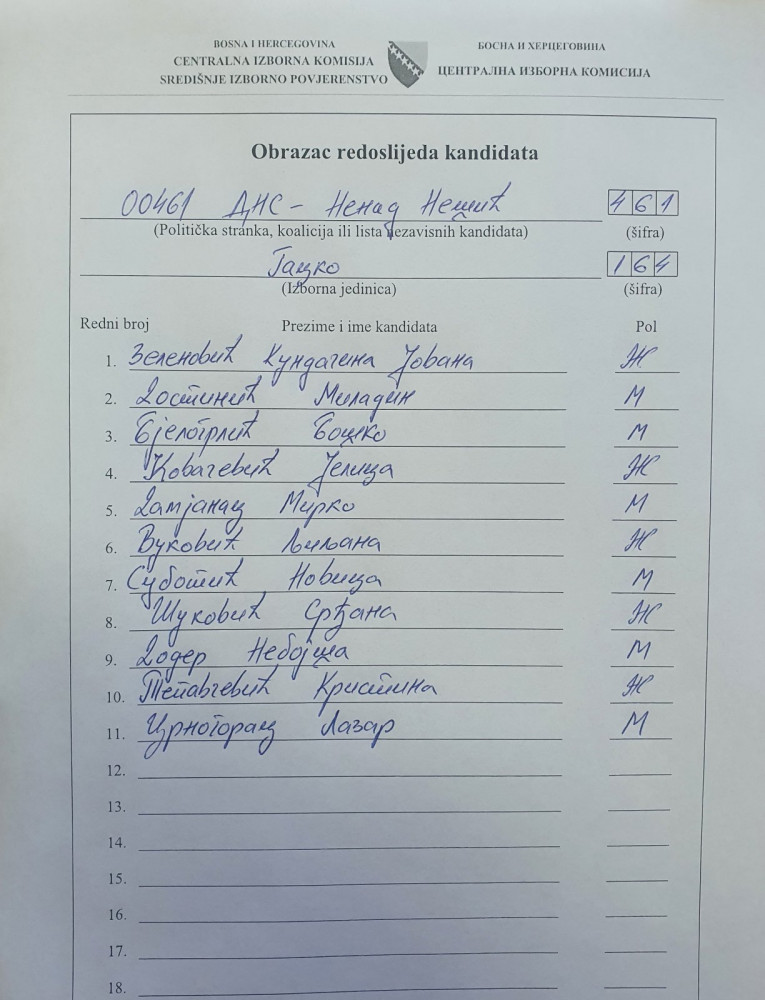 BOSNA I HERCEGOVINA
CENTRALNA IZBORNA KOMISIJA
SREDIŠNJE IZBORNO POVJERENSTVO
БОСНА И ХЕРЦЕГОВИНА
ЦЕНТРАЛНА ИЗБОРНА КОМИСИЈА
Obrazac redoslijeda kandidata
00461 ДНС - Ненад Нешић 461
(Politička stranka, koalicija ili lista nezavisnih kandidata) (šifra)
Гацко 164
(Izborna jedinica) (šifra)
Redni broj Prezime i ime kandidata Pol
1. Зеленовић Кундачина Јована Ж
2. Достинић Миладин М
3. Бјелогрлић Бошко М
4. Ковачевић Јелица Ж
5. Дамјанац Мирко М
6. Вуковић Љиљана Ж
7. Суботић Новица М
8. Шуковић Срђана Ж
9. Додер Небојша М
10. Тепавчевић Кристина Ж
11. Црногорац Лазар М
12.
13.
14.
15.
16.
17.
18.